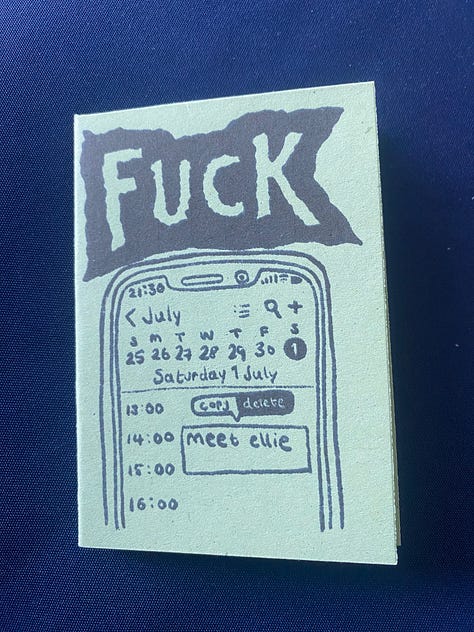 FUCK
21:30
< July
S M T W T F S
25 26 27 28 29 30 1
Saturday 1 July
13:00
copy delete
14:00 meet ellie
15:00
16:00